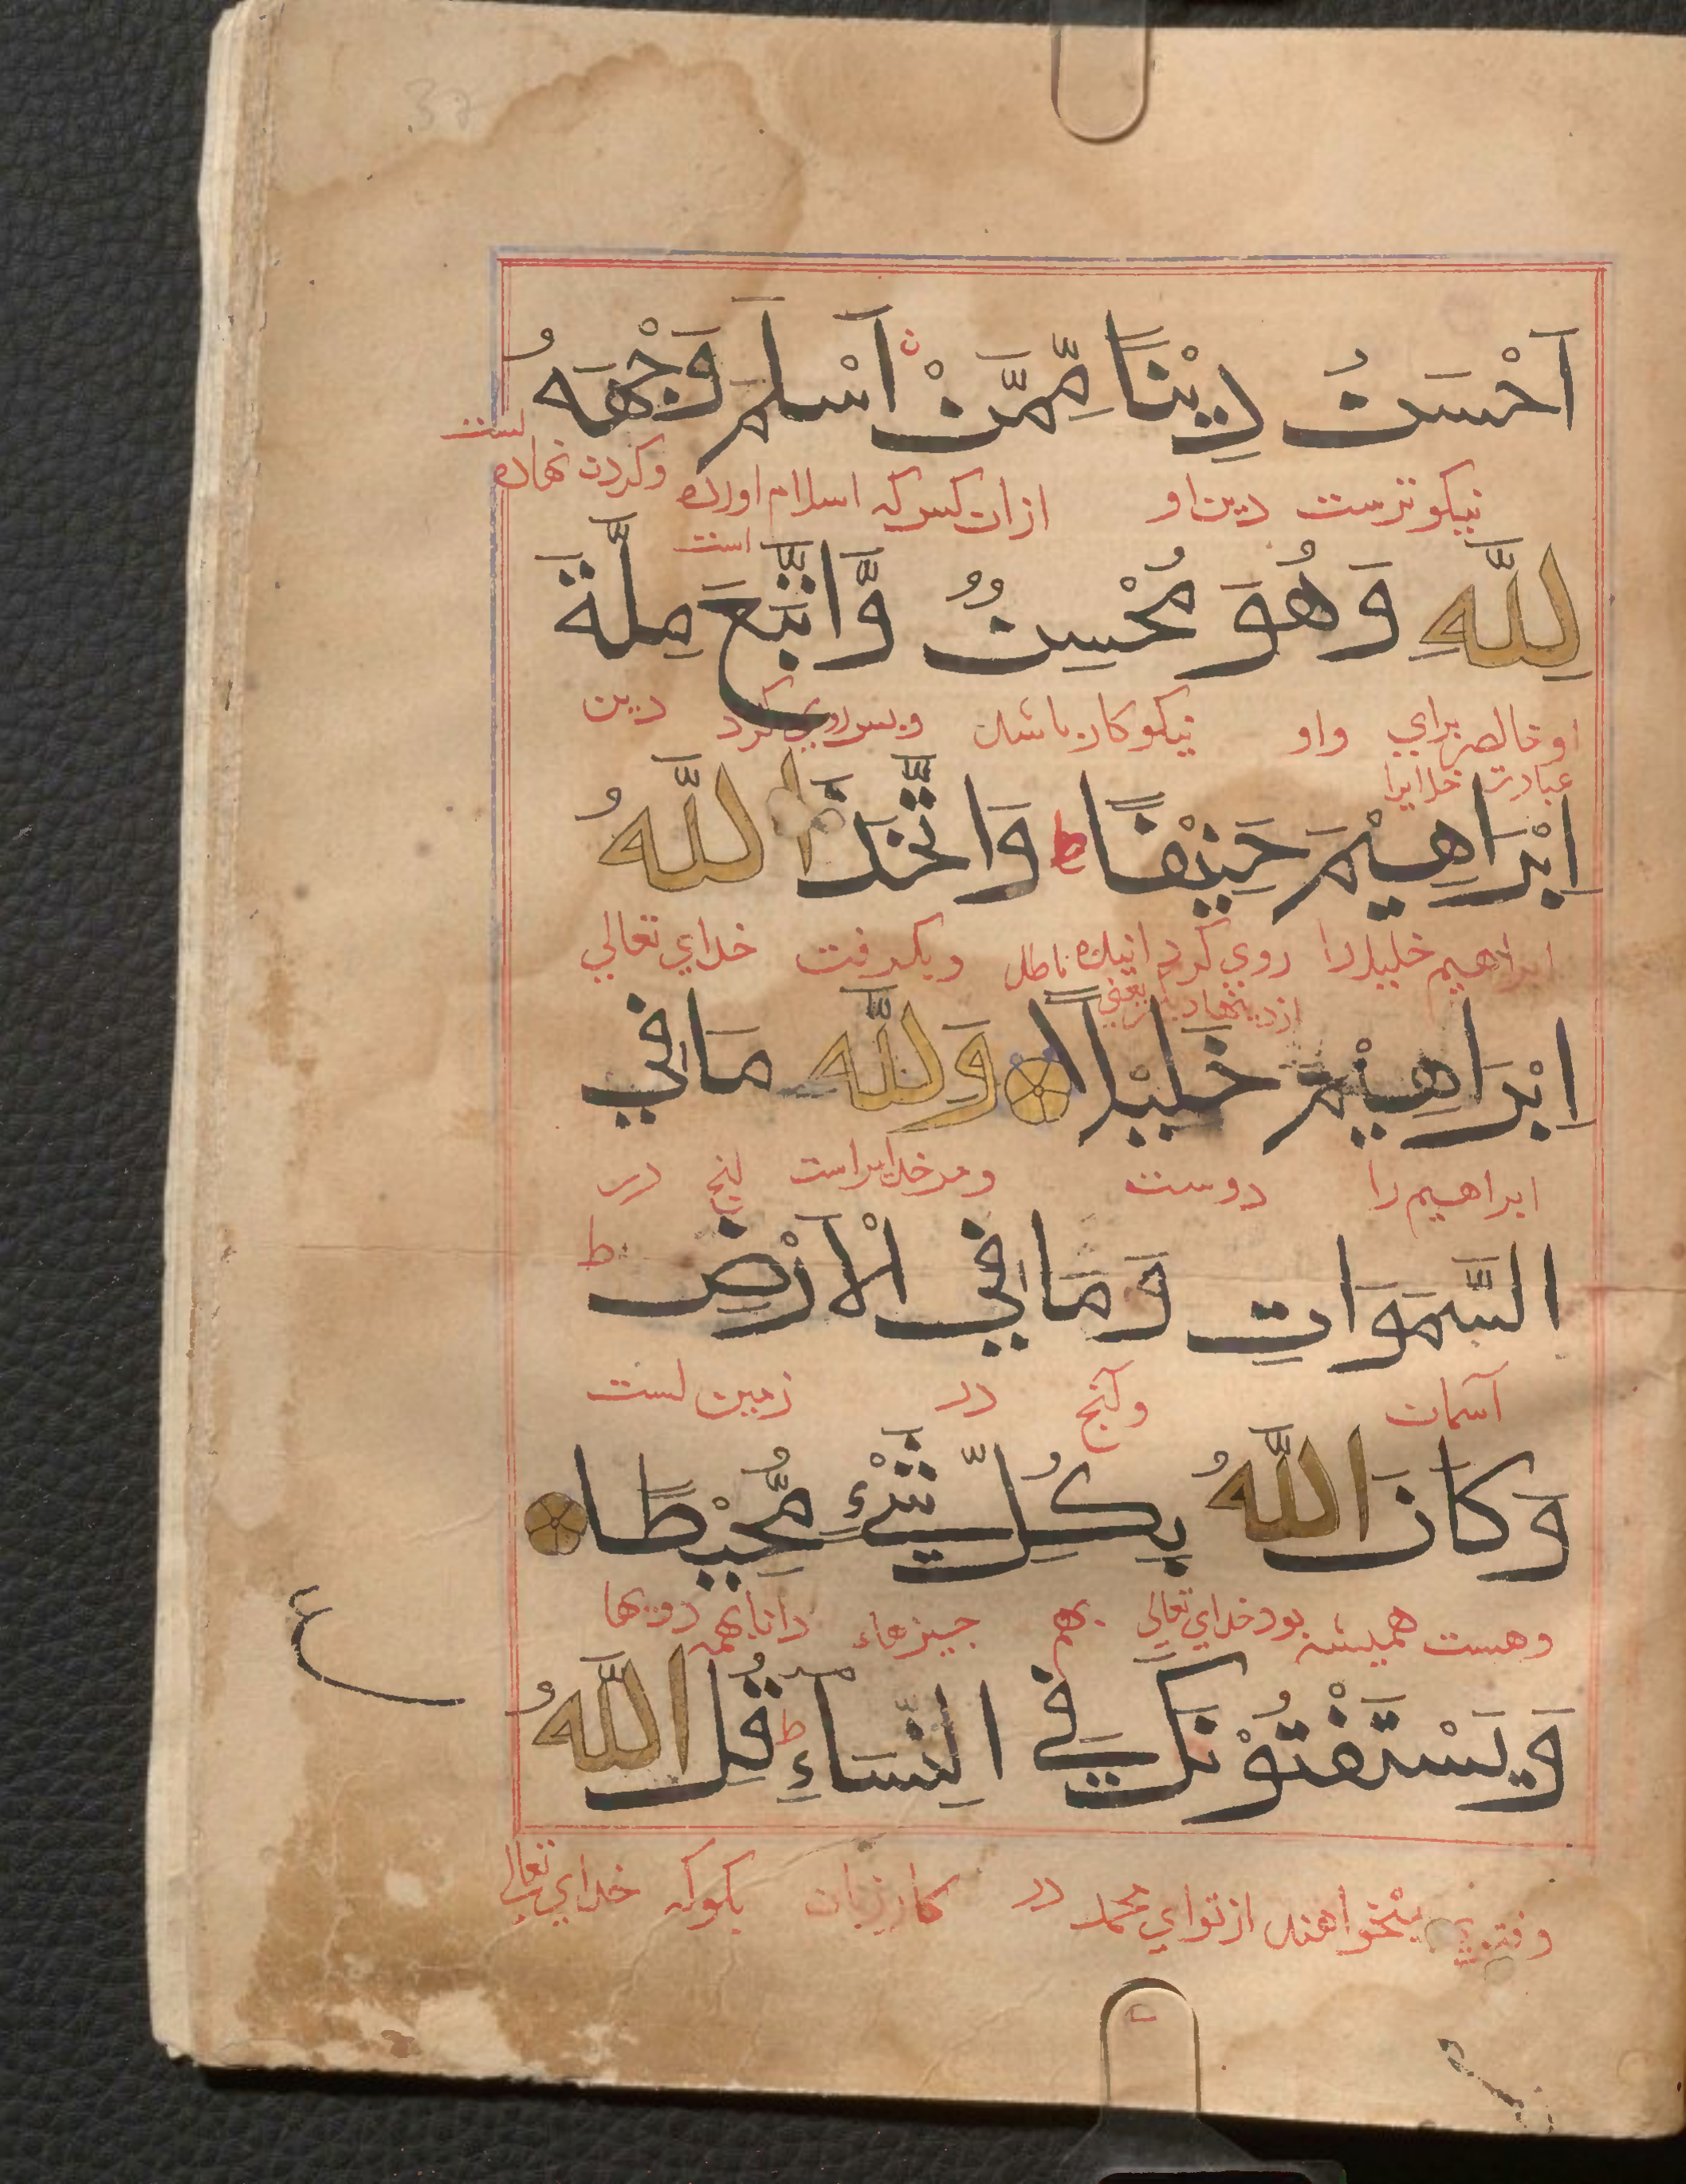 37
اَحْسَنُ دِيْنًا مِّمَّنْ اَسْلَمَ وَجْهَهُ
نیکوترست دین او ازان کس که اسلام اورده است وکردن نهاده است
لِلَّهِ وَهُوَ مُحْسِنٌ وَّاتَّبَعَ مِلَّةَ
او خالص برای واو نیکوکار باشد وپس روی کرد دین
عبادت خدایرا
اِبْرَاهِيْمَ حَنِيْفًا ط وَاتَّخَذَ اللَّهُ
ابراهیم خلیل را روی کرداننده باطل وبکرفت خدای تعالی
از دینها دیکر یعنی
اِبْرَاهِيْمَ خَلِيْلًا وَلِلَّهِ مَا فِي
ابراهیم را دوست ومر خدایراست انچ در
السَّمَوَاتِ وَمَا فِي الْاَرْضِ ط
آسمان وآنچ در زمین است
وَكَانَ اللَّهُ بِكُلِّ شَيْءٍ مُّحِيْطًا
وهست همیشه بود خدای تعالی بهمه چیزهاء دانا بهمه رویها
ع
وَيَسْتَفْتُوْنَكَ فِي النِّسَاءِ ط قُلِ اللَّهُ
وفتوی میخواهند از تو ای محمد در کار زنان بکو که خدای تعالی